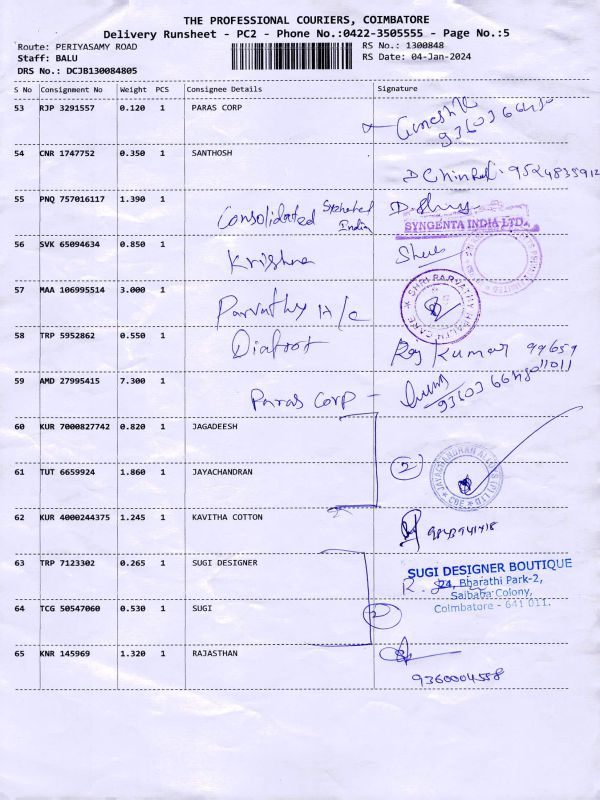 THE PROFESSIONAL COURIERS, COIMBATORE
Delivery Runsheet - PC2 - Phone No.:0422-3505555 - Page No.:5
Route: PERIYASAMY ROAD RS No.: 1300848
Staff: BALU RS Date: 04-Jan-2024
DRS No.: DCJB130084805
S No Consignment No Weight PCS Consignee Details Signature
53 RJP 3291557 0.120 1 PARAS CORP
54 CNR 1747752 0.350 1 SANTHOSH
9524835912
55 PNQ 757016117 1.390 1 Consolidated India
SYNGENTA INDIA LTD.
56 SVK 65094634 0.850 1 Krishna
57 MAA 106995514 3.000 1 Parvathy H/C
SHRI PARVATHY HEALTH CARE
58 TRP 5952862 0.550 1 Diafoot Raj Kumar 99659
11011
59 AMD 27995415 7.300 1 Paras Corp -
60 KUR 7000827742 0.820 1 JAGADEESH
61 TUT 6659924 1.860 1 JAYACHANDRAN 2
JAYACHANDRAN ALLOYS (P) LTD CBE
62 KUR 4000244375 1.245 1 KAVITHA COTTON
63 TRP 7123302 0.265 1 SUGI DESIGNER
SUGI DESIGNER BOUTIQUE
24, Bharathi Park-2,
Saibaba Colony,
Coimbatore - 641 011.
64 TCG 50547060 0.530 1 SUGI 2
65 KNR 145969 1.320 1 RAJASTHAN
9360004558